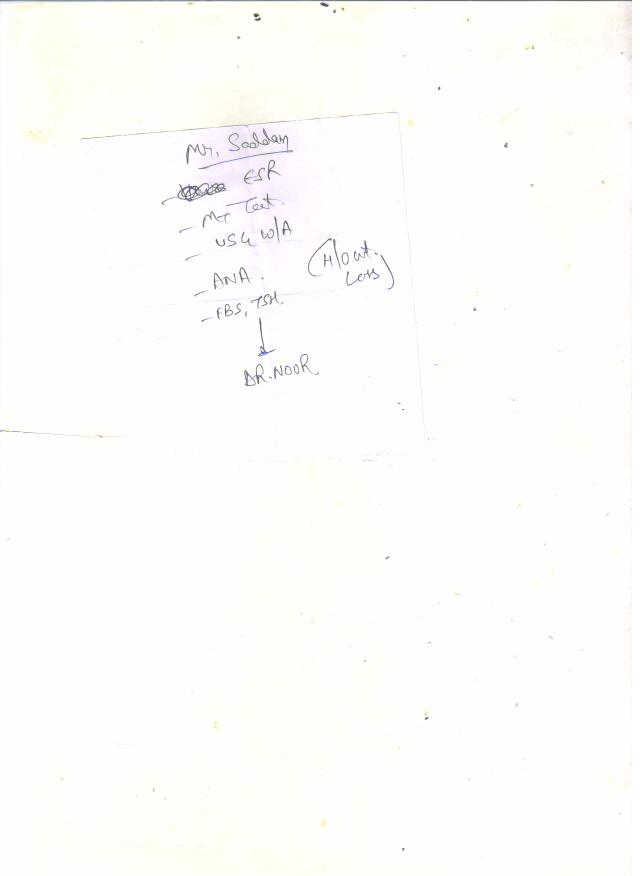 Mr. Saddam
- ESR
- MT Test.
- USG W/A
(H/O wt.
Loss)
- ANA.
- FBS, TSH.
DR. NOOR